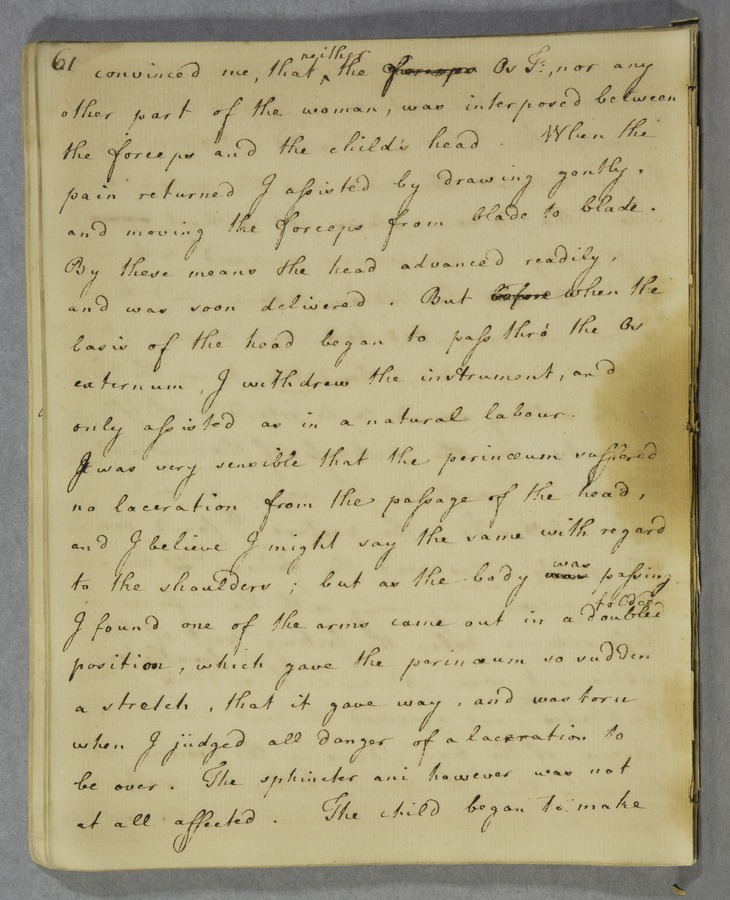 61
convinced me, that neither the forceps Os T:, nor any
other part of the woman, was interposed between
the forceps and the child's head. When the
pain returned I assisted by drawing gently,
and moving the forceps from blade to blade.
By these means the head advanced readily,
and was soon delivered. But before when the
basis of the head began to pass thro' the Os
externum, I withdrew the instrument, and
only assisted as in a natural labour.
I was very sensible that the perinæum suffered
no laceration from the passage of the head,
and I believe I might say the same with regard
to the shoulders; but as the body was passing
I found one of the arms come out in a folded doubled
position, which gave the perinæum so sudden
a stretch, that it gave way, and was torn
when I judged all danger of a laceration to
be over. The sphincter ani however was not
at all affected. The child began to make